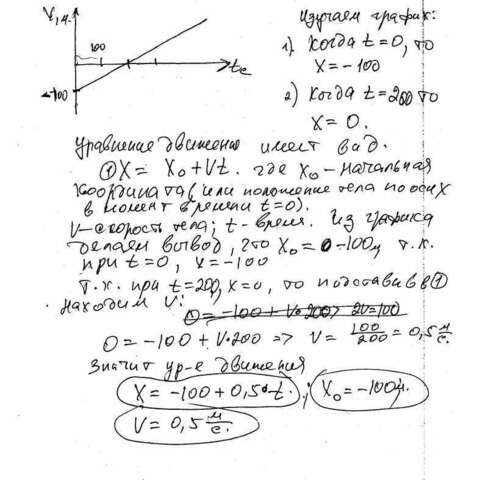 X, м.
100
t c
-100
Изучаем график:
1) Когда t=0, то
X=-100
2) Когда t=200 то
X=0.
Уравнение движения имеет вид.
① X = X₀+Vt. где X₀ - начальная
координата (или положение тела по оси X
в момент времени t=0).
V-скорость тела; t-время. Из графика
делаем вывод, что X₀ = -100м, т.к.
при t=0, x=-100
Т.к. при t=200, x=0, то подставив в ①
находим V:
0 = -100 + V·200 2V=100
0 = -100 + V·200 => V = 100/200 = 0,5 м/с.
Значит ур-е движения
X = -100 + 0,5·t. ; X₀ = -100м.
V = 0,5 м/с.